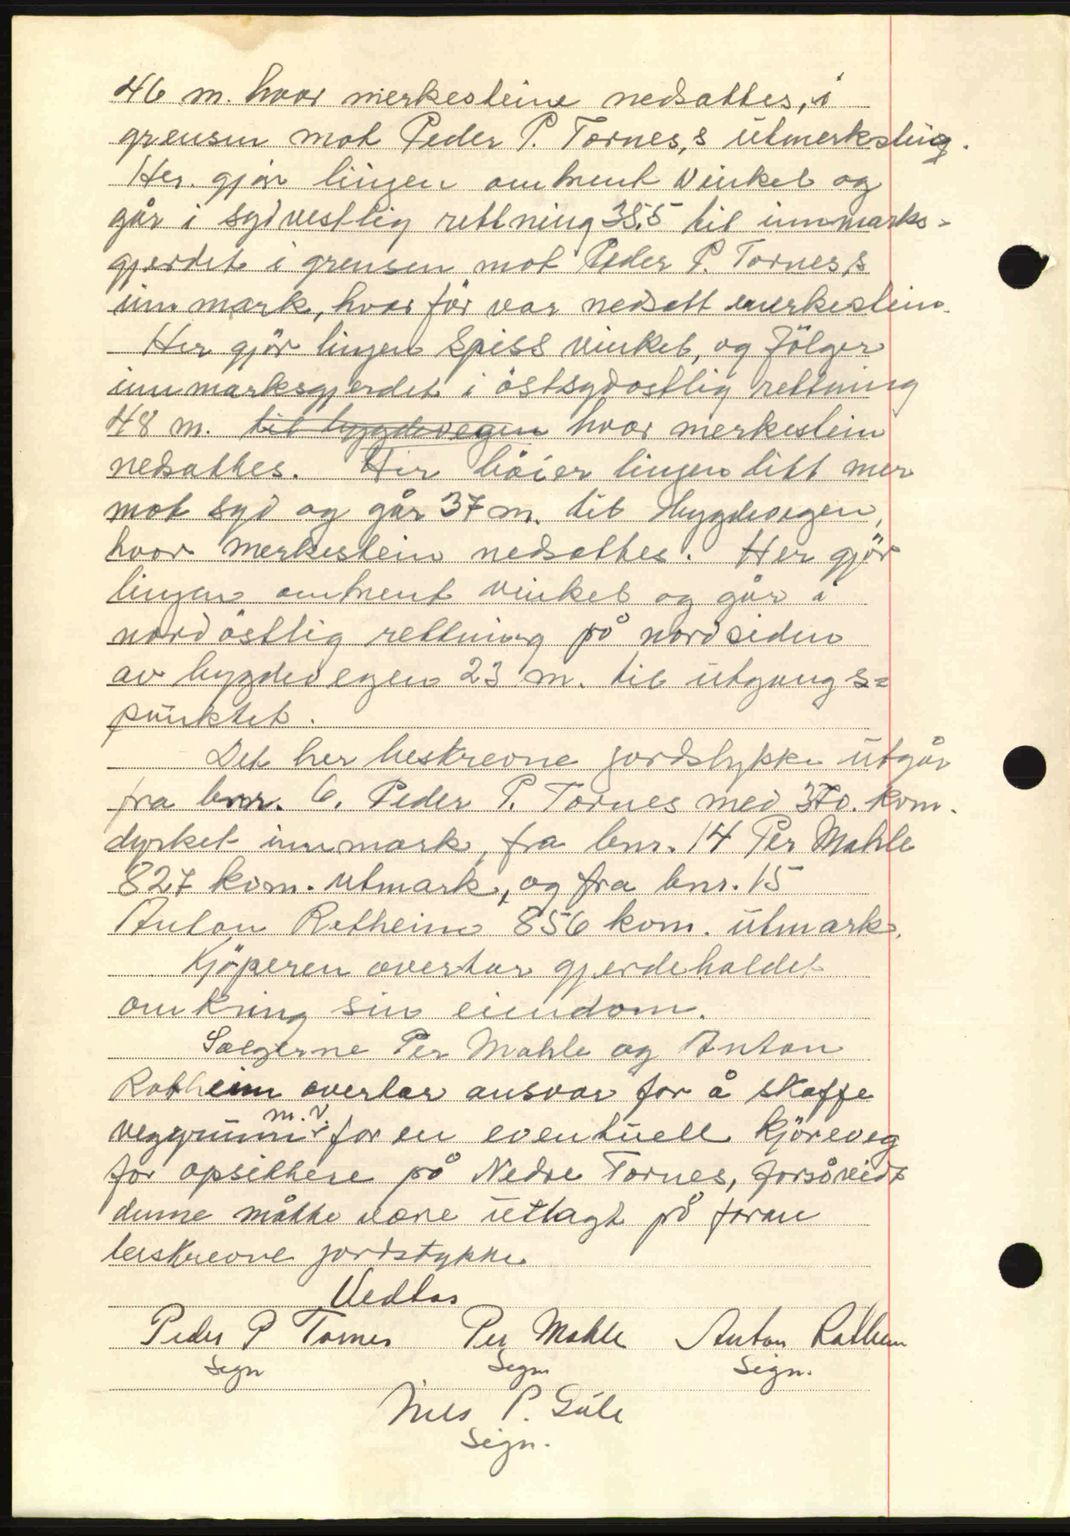 46 m. hvor merkesteine nedsattes, i
grensen mot Peder P. Tornes,s utmerksting.
Her gjör linjen omtrent vinkel og
går i sydvestlig rettning 35.5 til innmarks-
gjerdet i grensen mot Peder P. Tornes,s
inn mark, hvor för var nedsatt merkestein.
Her gjör linjen spiss vinkel, og fölger
innmarksgjerdet i östsydostlig rettning
48 m. til bygdevegen hvor merkestein
nedsattes. Her böier linjen litt mer
mot syd og går 37 m. til bygdevegen,
hvor merkestein nedsattes. Her gjör
linjen omtrent vinkel og går i
nordöstlig rettning på nordsiden
av bygdevegen 23 m. til utgangs=
punktet.
Det her beskrevne jordstykke utgår
fra bnr. 6. Peder P. Tornes med 370. kvm.
dyrket innmark, fra bnr. 14 Per Mahle
827 kvm. utmark, og fra bnr. 15
Anton Rotheim 856 kvm. utmark.
Kjöperen overtar gjerdeholdet
omkring sin eiendom.
Selgerne Per Mahle og Anton
Rotheim overtar ansvar for å skaffe
veggrunn m.v. for en eventuell kjöreveg
for opsittere på Nedre Tornes, forsåvidt
denne måtte være utlagt på foran
beskrevne jordstykke
Vedtas
Peder P Tornes Per Mahle Anton Rotheim
Sign Sign Sign.
Nils P. Gule
Sign.